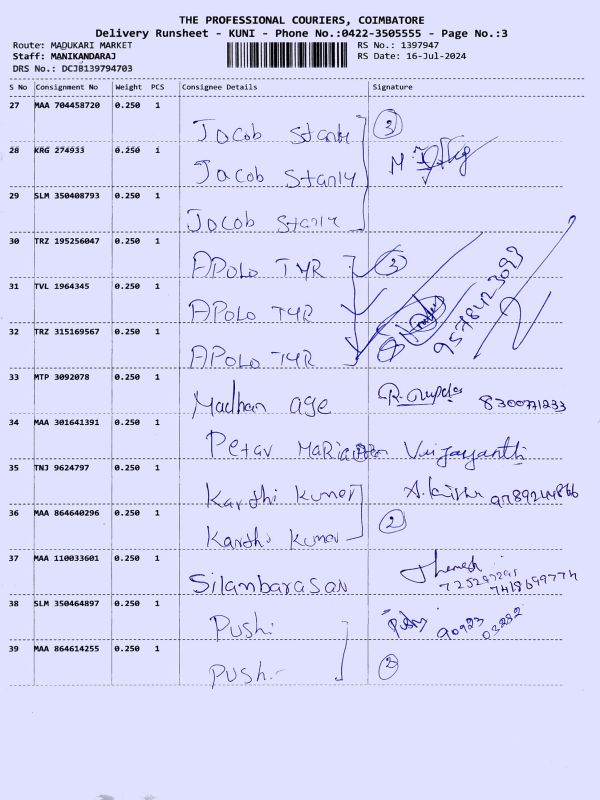 THE PROFESSIONAL COURIERS, COIMBATORE
Delivery Runsheet - KUNI - Phone No.:0422-3505555 - Page No.:3
Route: MADUKARI MARKET RS No.: 1397947
Staff: MANIKANDARAJ RS Date: 16-Jul-2024
DRS No.: DCJB139794703
S No Consignment No Weight PCS Consignee Details Signature
27 MAA 704458720 0.250 1 Jocob Stanly 3
28 KRG 274933 0.250 1 Jacob Stanly
29 SLM 350408793 0.250 1 Jocob Stanly
30 TRZ 195256047 0.250 1 APOLO TYR 3
31 TVL 1964345 0.250 1 APOLO TYR 9578423093
32 TRZ 315169567 0.250 1 APOLO TYR
33 MTP 3092078 0.250 1 Madhan age R. Gupta
34 MAA 301641391 0.250 1 Petar Vijayanthi
35 TNJ 9624797 0.250 1 Karthi Kumar
36 MAA 864640296 0.250 1 Karthi Kumar 2
37 MAA 110033601 0.250 1 Silambarasan 7418699774
38 SLM 350464897 0.250 1 Push. 90923 03282
39 MAA 864614255 0.250 1 Push. 2